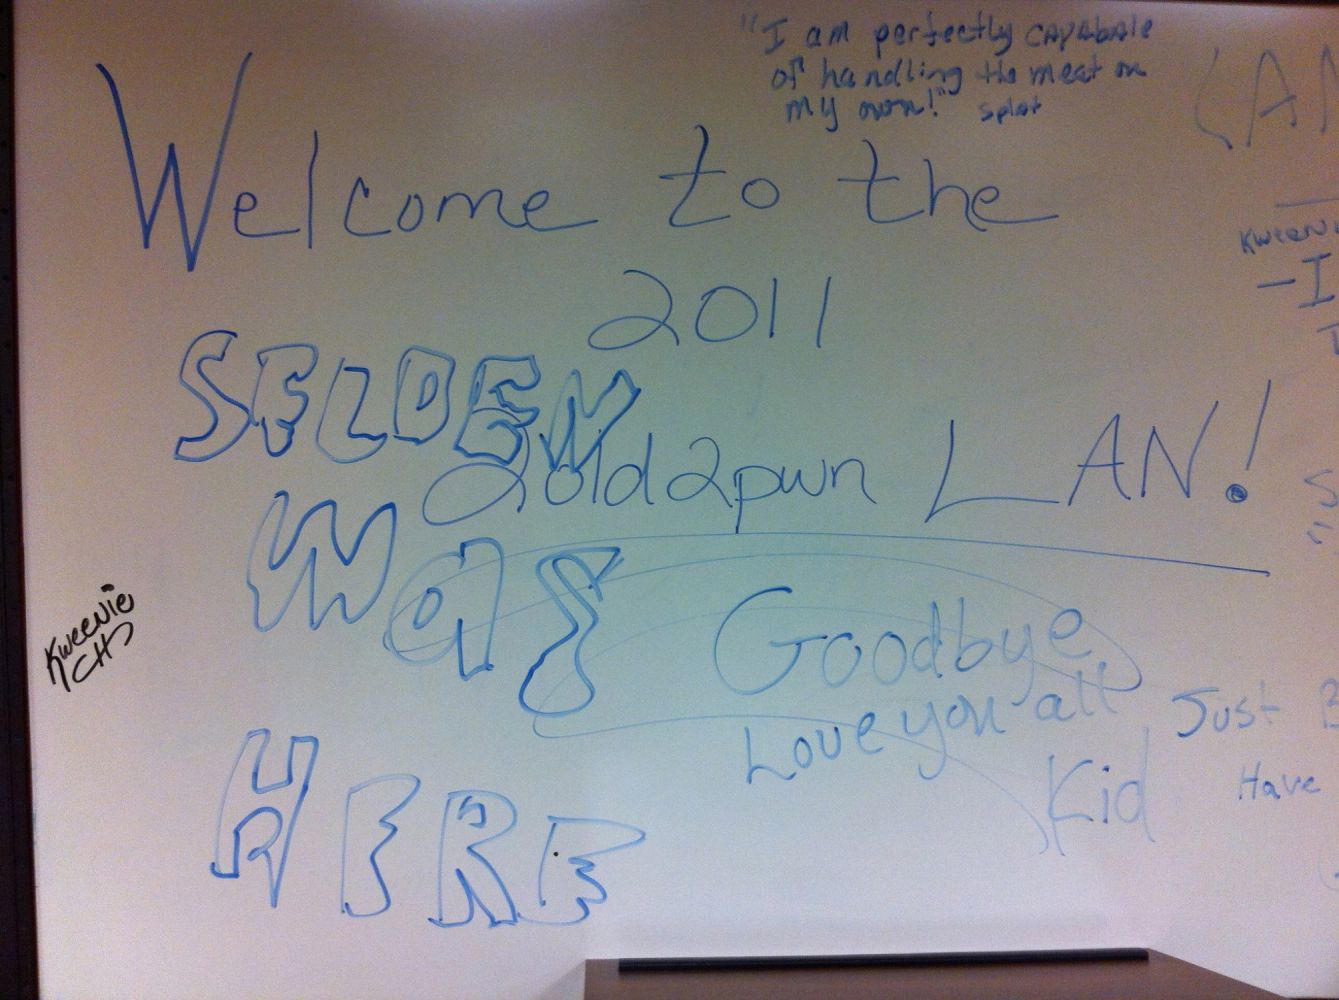 "I am perfectly capabale
of handling the meat on
my own!" Splat
Welcome to the
2011
2old2pwn LAN!
SELDEN
was
HERE
Kweenie
Goodbye
Love you all
Kid
Just
Have
-I